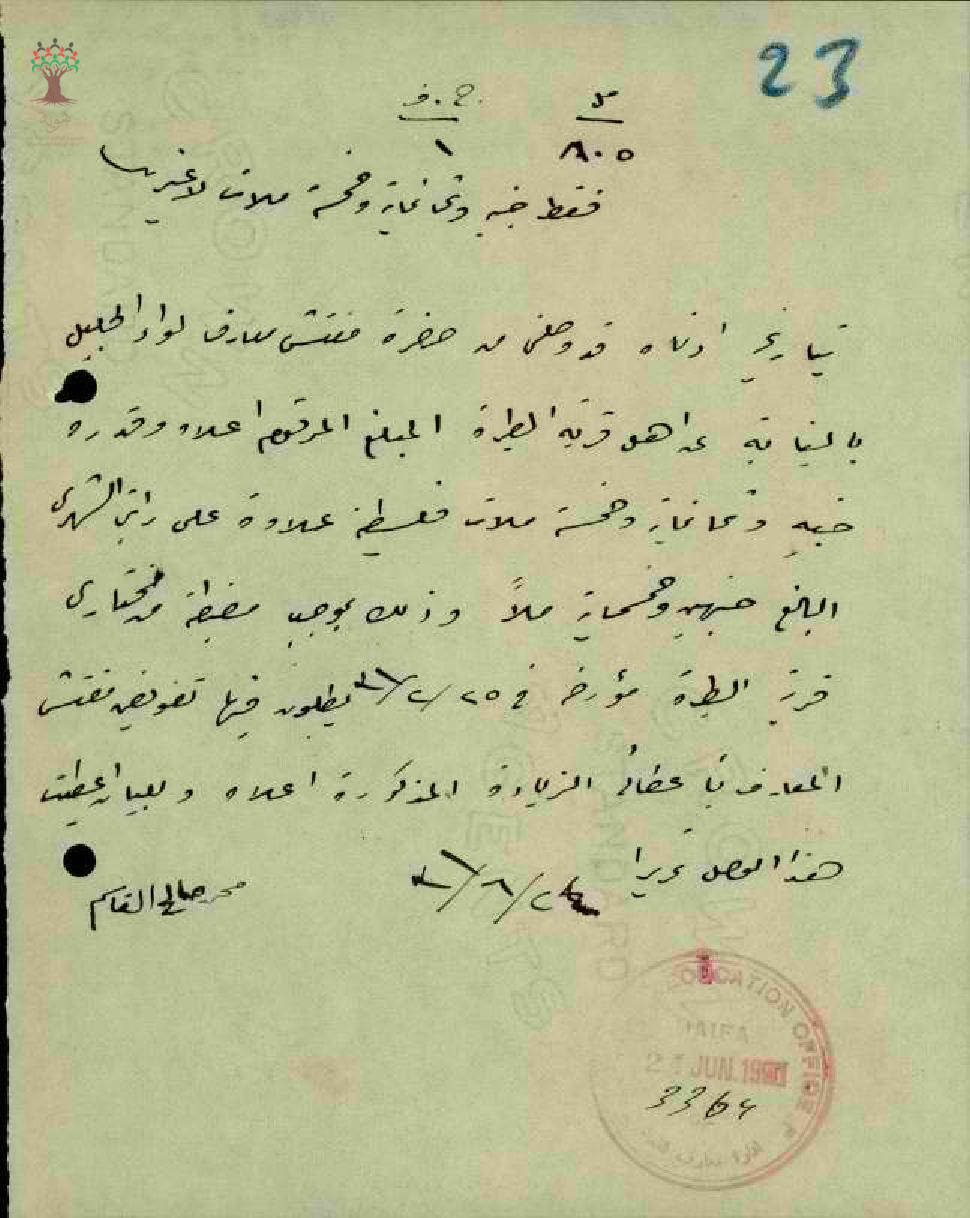 23
مل ج.ف
٨٠٥ ١
فقط جنيه وثمانماية وخمسة ملات لا غير
بتاريخ ادناه قد وصلني من حضرة مفتش معارف لواء الجليل
بالنيابة عن اهل قرية الطيرة المبلغ المرقوم اعلاه وقدره
جنيه وثمانماية وخمسة ملات فلسطينية علاوة على راتبي الشهري
البالغ جنيهين وخمسماية ملاً وذلك بموجب مضبطة من مختاري
قرية الطيرة مؤرخة في ٢٥/٢/ يطلبون فيها تفويض مفتش
المعارف باعطائي الزيادة المذكورة اعلاه وللبيان اعطيت
هذا الوصل تحريرا
محمد صالح القاسم
EDUCATION OFFICE
HAIFA
JUN.
3364
ادارة معارف